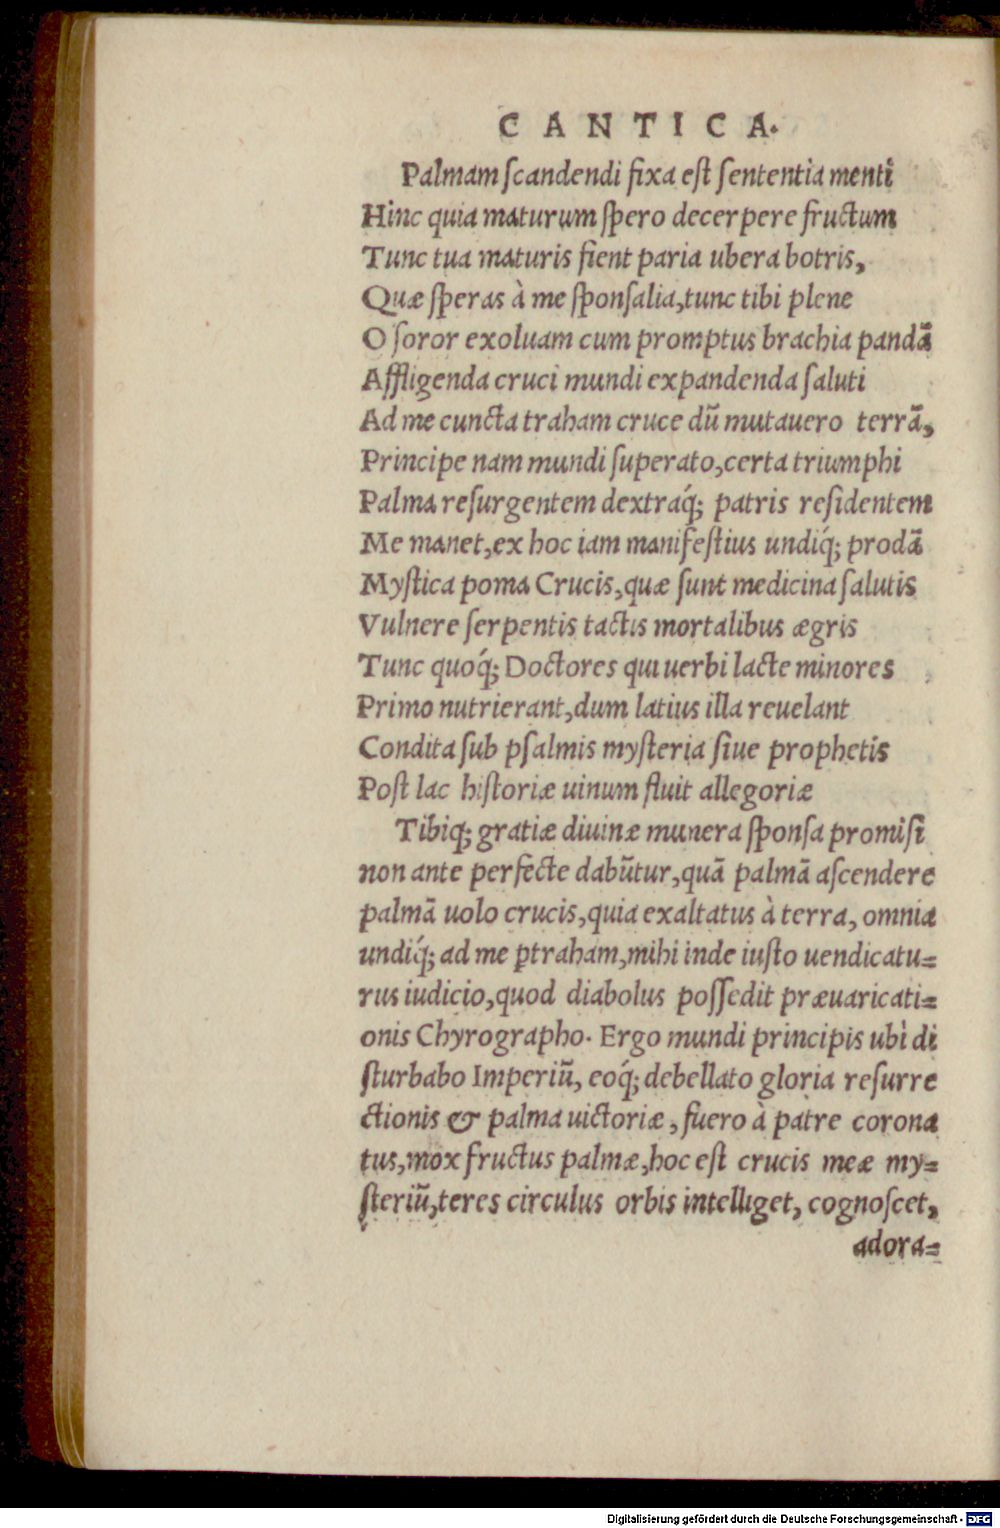 CANTICA.
Palmam ſcandendi fixa eſt ſententia menti
Hinc quia maturum ſpero decerpere fructum
Tunc tua maturis fient paria ubera botris,
Quæ ſperas à me ſponſalia, tunc tibi plene
O ſoror exoluam cum promptus brachia pandā
Affligenda cruci mundi expandenda ſaluti
Ad me cuncta traham cruce dū mutauero terrā,
Principe nam mundi ſuperato, certa triumphi
Palma reſurgentem dextraq́; patris reſidentem
Me manet, ex hoc iam manifeſtius undiq́; prodā
Myſtica poma Crucis, quæ ſunt medicina ſalutis
Vulnere ſerpentis tactis mortalibus ægris
Tunc quoq́; Doctores qui uerbi lacte minores
Primo nutrierant, dum latius illa reuelant
Condita ſub pſalmis myſteria ſiue prophetis
Poſt lac hiſtoriæ uinum fluit allegoriæ
Tibiq; gratiæ diuinæ munera ſponſa promiſi
non ante perfecte dabūtur, quā palmā aſcendere
palmā uolo crucis, quia exaltatus à terra, omnia
undiq́; ad me ꝑtraham, mihi inde iuſto uendicatu=
rus iudicio, quod diabolus poſſedit præuaricati=
onis Chyrographo. Ergo mundi principis ubi di
ſturbabo Imperiū, eoq́; debellato gloria reſurre
ctionis & palma uictoriæ, fuero à patre corona
tus, mox fructus palmæ, hoc eſt crucis meæ my=
ſteriū, teres circulus orbis intelliget, cognoſcet,
adora=
Digitalisierung gefördert durch die Deutsche Forschungsgemeinschaft - DFG